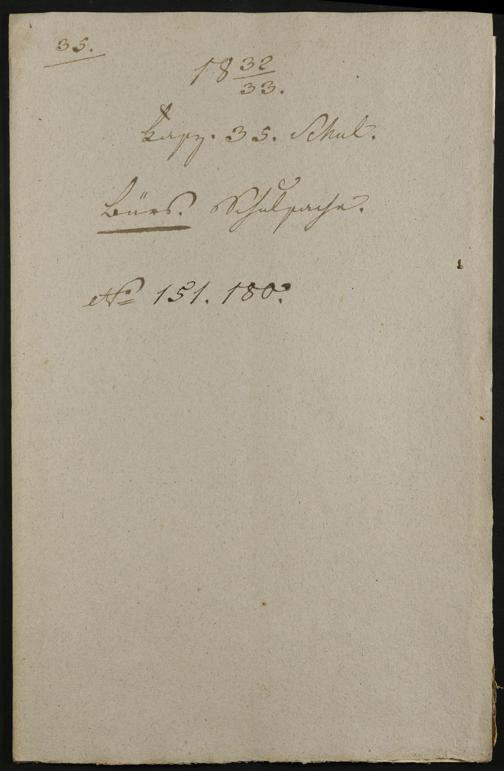 35.
18 32/33.
Fasz. 35. Schul.
Bürs. Schulsache.
No 151. 180.